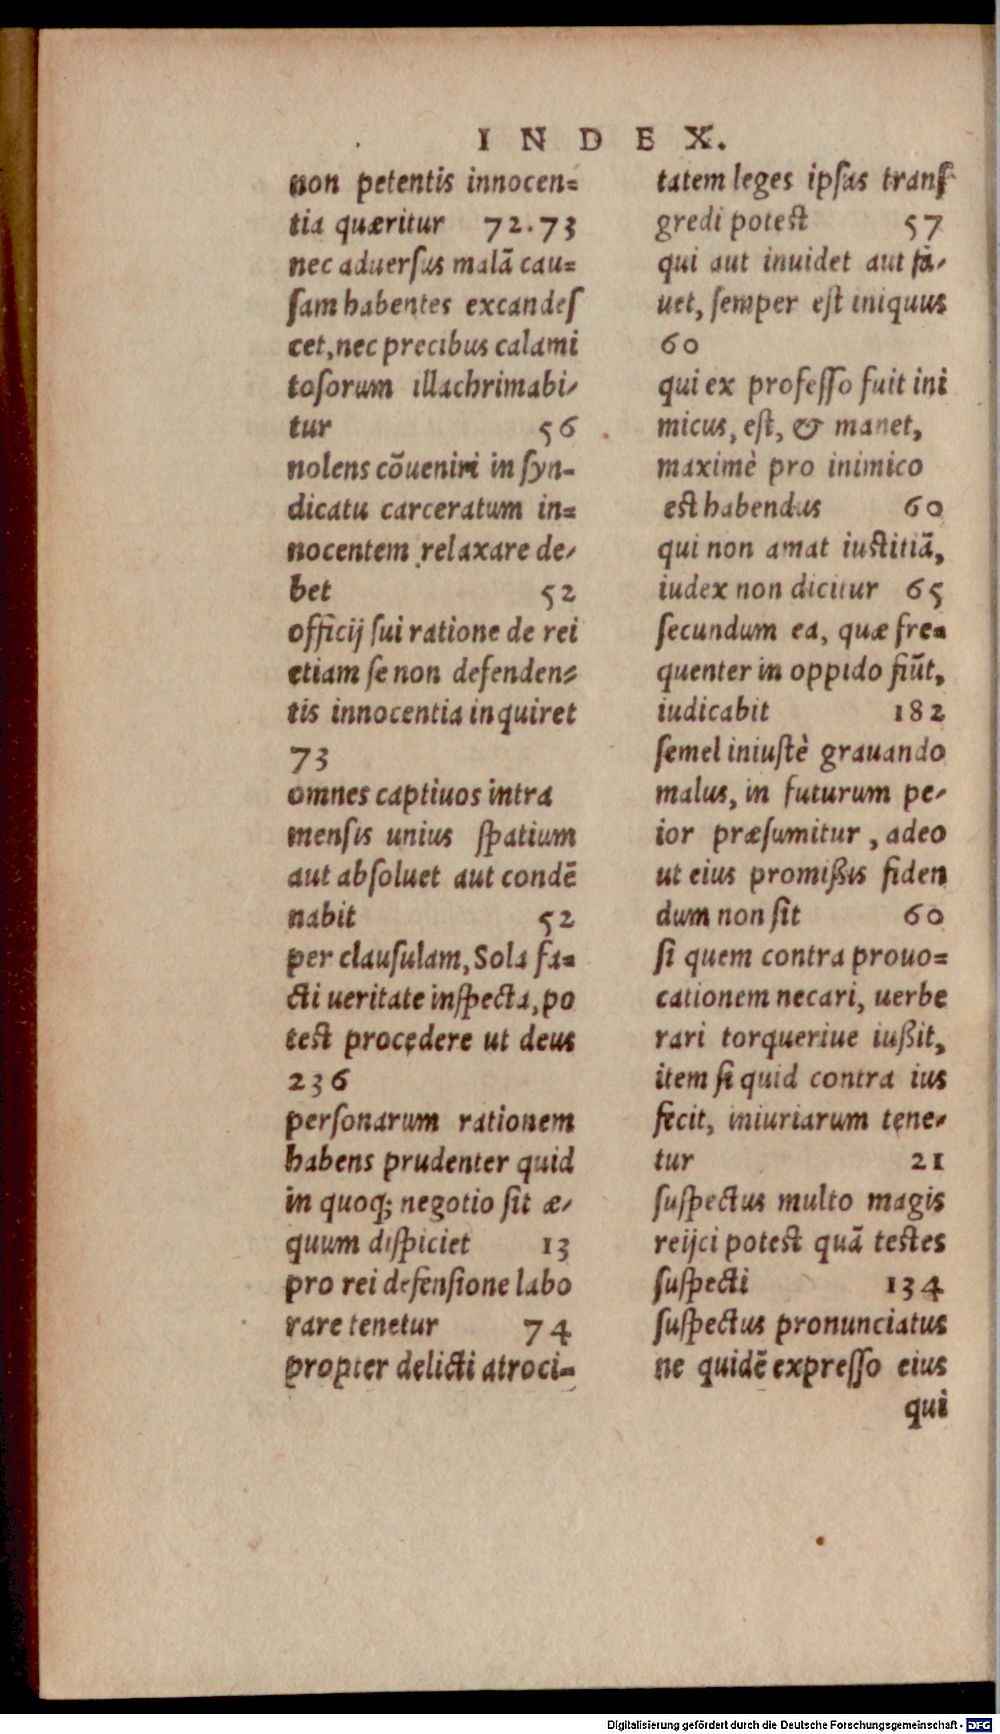 INDEX.
non petentis innocen=
tia quæritur 72.73
nec aduerſus malã cau=
ſam habentes excandeſ
cet, nec precibus calami
toſorum illachrimabi-
tur 56
nolens cõueniri in ſyn-
dicatu carceratum in=
nocentem relaxare de-
bet 52
officij ſui ratione de rei
etiam ſe non defenden=
tis innocentia inquiret
73
omnes captiuos intra
menſis unius ſpatium
aut abſoluet aut condẽ
nabit 52
per clauſulam, Sola fa=
cti ueritate inſpecta, po
test procedere ut deus
236
perſonarum rationem
habens prudenter quid
in quoq; negotio ſit æ-
quum diſpiciet 13
pro rei defenſione labo
rare tenetur 74
propter delicti atroci-
tatem leges ipſas tranſ
gredi potest 57
qui aut inuidet aut fa-
uet, ſemper eſt iniquus
60
qui ex profeſſo fuit ini
micus, eſt, & manet,
maximè pro inimico
est habendus 60
qui non amat iustitiã,
iudex non dicitur 65
ſecundum ea, quæ fre=
quenter in oppido fiũt,
iudicabit 182
ſemel iniuſtè grauando
malus, in futurum pe-
ior præſumitur, adeo
ut eius promißis fiden
dum non ſit 60
ſi quem contra prouo=
cationem necari, uerbe
rari torqueriue iußit,
item ſi quid contra ius
fecit, iniuriarum tene-
tur 21
ſuſpectus multo magis
reijci potest quã testes
ſuſpecti 134
ſuſpectus pronunciatus
ne quidẽ expreſſo eius
qui
Digitalisierung gefördert durch die Deutsche Forschungsgemeinschaft - DFG